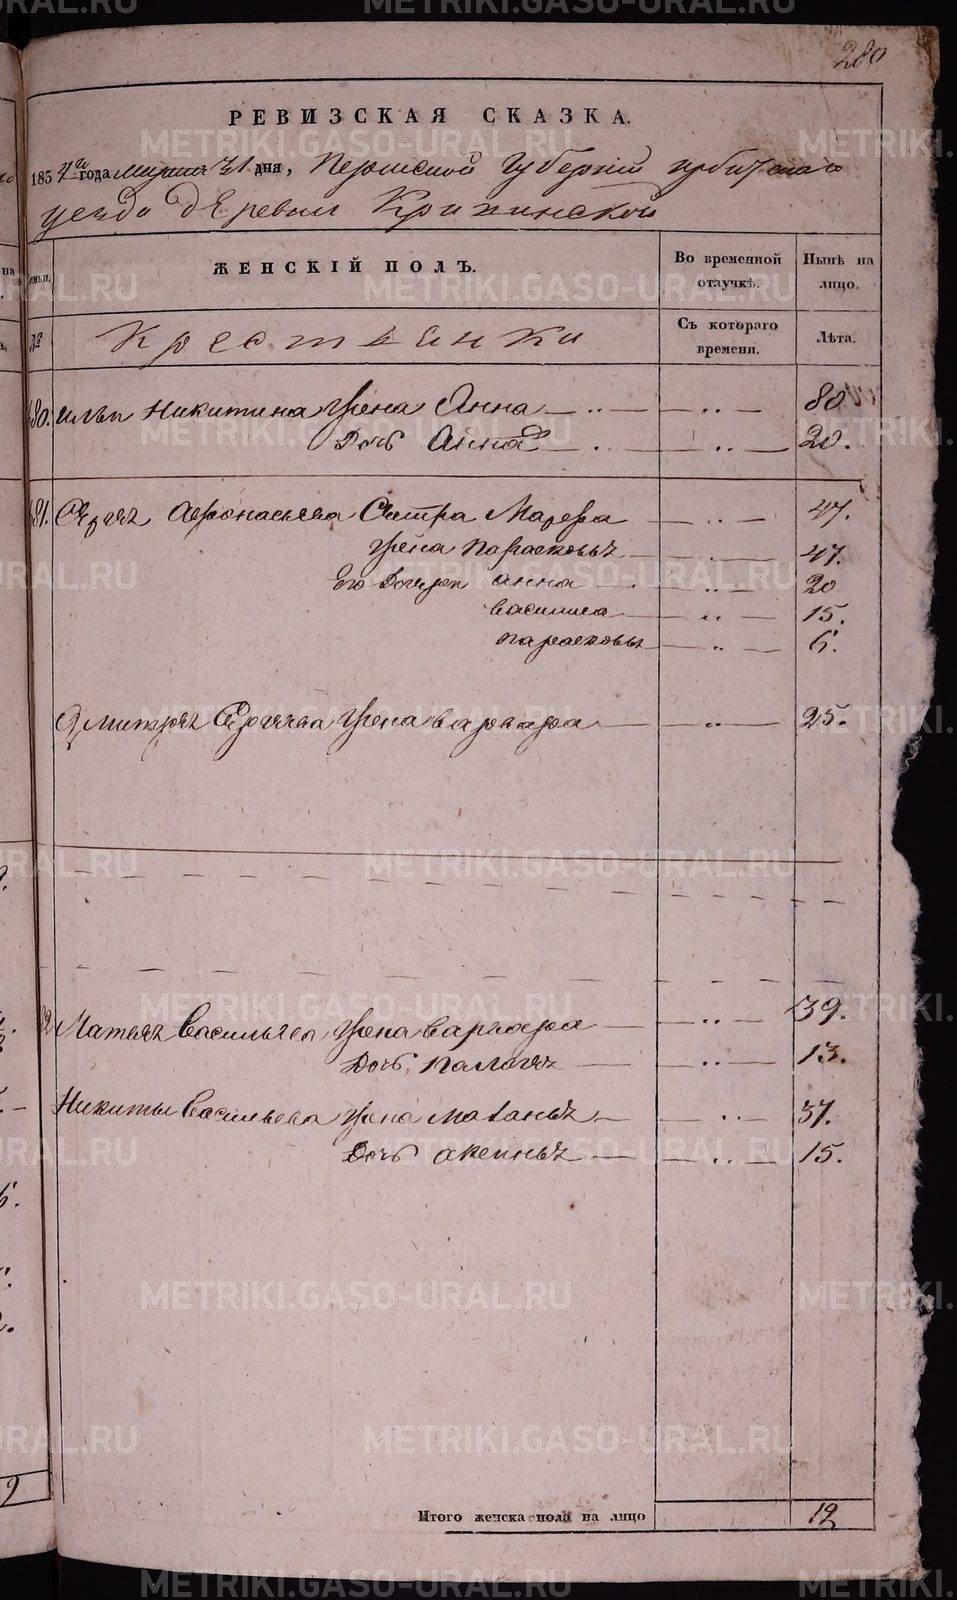 280
РЕВИЗСКАЯ СКАЗКА.
185 года марта 21 дня, Пермской Губернии Ирбитскаго
уезда деревни Крипинской
Семьи. ЖЕНСКІЙ ПОЛЪ. Во временной отлучкѣ. Нынѣ на лицо.
№ Крестьянки Съ котораго времени. Лѣта.
80. Ильи Никитина Жена Анна 80
Дочь Анна 20.
81. Сергея Афонасьева Сестра Марфа 47.
Жена Парасковья 47.
Его Дочери Анна 20
Василиса 15.
Парасковья 6.
Дмитрея Сергеева Жена Варвара 25.
Матвея Васильева Жена Варвара 39.
Дочь Палагея 13.
Никиты Васильева Жена Маланья 37.
Дочь Аксинья 15.
Итого женска пола на лицо 12
METRIKI.GASO-URAL.RU